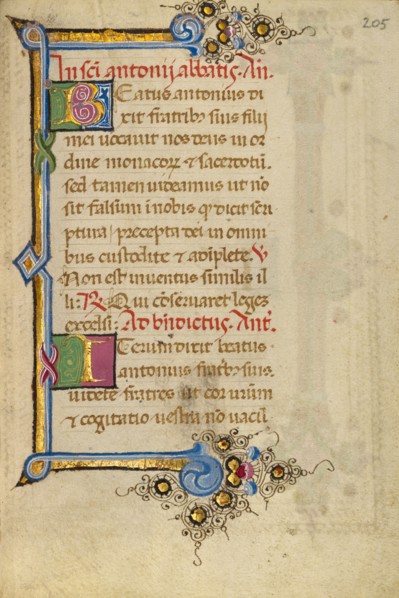 205
In sc̄i antonij abbatis. An̄.
BEatus antonius di
xit fratribꝰ suis filii
mei uocauit nos deus in or
dine monacoꝝ & sacerdotū.
sed tamen uideamus ut nō
sit falsum ī nobis qđ dicit scri
ptura / precepta dei in omni
bus custodite & adīplete. ℣
Non est inuentus similis il
li: ℟ Qui cōseruaret leges
excelsi: Ad bn̄dictus. Ant̄.
ITerum dixit beatus
antonius fratribꝰ suis.
uidete fratres ut cor urūm
& cogitatio uestra nō uacū